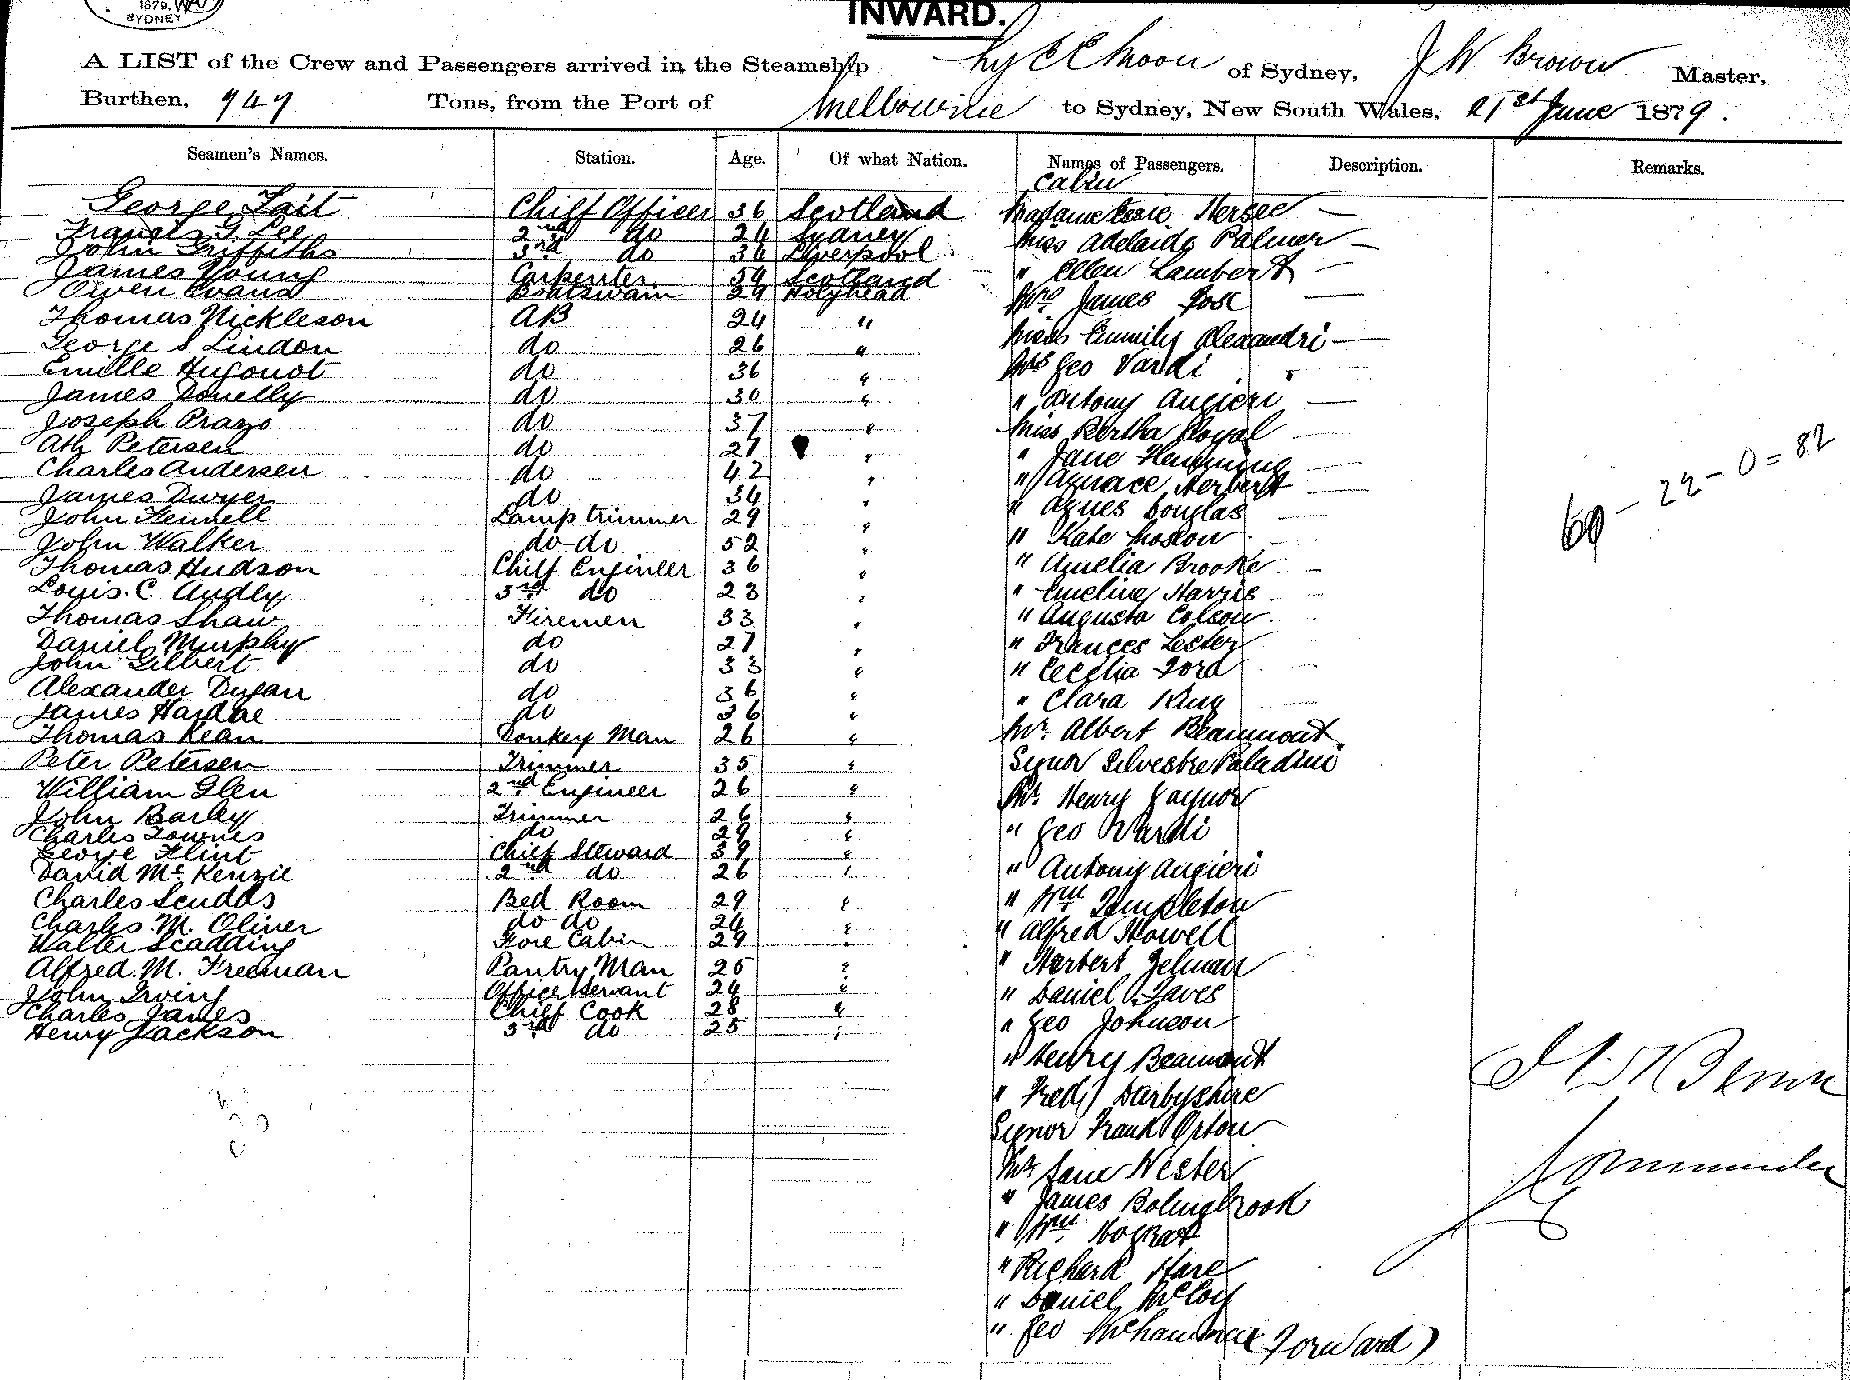 1879.
SYDNEY
INWARD.
A LIST of the Crew and Passengers arrived in the Steamship Ly EE Moon of Sydney, J W Brown Master,
Burthen, 747 Tons, from the Port of Melbourne to Sydney, New South Wales, 21st June 1879.
Seamen's Names. Station. Age. Of what Nation. Names of Passengers. Description. Remarks.
Cabin
George Tait Chief Officer 36 Scotland Madame Hersee —
Francis Lee 2nd do 24 Sydney Miss Adelaide Palmer —
John Griffiths 3rd do 36 Liverpool
James Young Carpenter 54 Scotland " Ellen Lambert —
Owen Evans Boatswain 29 Holyhead Mrs James Fox —
Thomas Nickleson AB 24 "
George S Lindon do 26 " Miss Emmily Alexandri —
Emille Hugonot do 36 " Mrs Geo Vardi
James Donelly do 30 " " Antony Angieri —
Joseph Prazo do 37 " Miss Bertha Royal —
Petersen do 27 "
Charles Andersen do 42 " " Jane Hemming —
James Dwyer do 34 " Herbert —
John Fennell Lamp trimmer 29 " " Agnes Douglas —
John Walker do do 52 " " Kate
Thomas Hudson Chief Engineer 36 " " Amelia Brooke —
Louis. C Audly 3rd do 23 " " Emeline Harris —
Thomas Shaw Firemen 33 " " Augusta Colson
Daniel Murphy do 27 " " Frances Lester
John Gilbert do 33 " " Cecelia Ford
Alexander Dugan do 36 " " Clara King
James Hardie do 36 "
Thomas Kean Donkey Man 26 " Mr. Albert Beaumont
Peter Petersen Trimmer 35 " Signor Silvestre Paladini
William Glen 2nd Engineer 26 " Mr. Henry Gaynor
John Barley Trimmer 26 "
Charles Townes do 29 " " Geo Vardi
George Flint Chief Steward 39 "
David McKenzie 2nd do 26 " " Antony Angieri
Charles Scudds Bed Room 29 " " Wm Templeton
Charles. M. Oliver do do 24 " " Alfred Howell
Walter Scadding Fore Cabin 29 "
Alfred. M. Freeman Pantry Man 25 " " Herbert Zelman
John Irving Officer Servant 24 " " Daniel
Charles James Chief Cook 28 "
Henry Jackson 3rd do 25 " " Geo Johnson
" Henry Beaumont
" Fredk Darbyshire
Signor Frank Orton
Mr Wester
" James Bolingbrook
" Wm
" Richard Hare
" Daniel McCoy
" Geo (Forward)
60 - 22 - 0 = 82
J W Brown
Commander